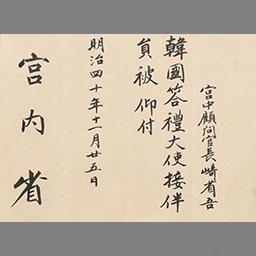 宮中顧問官長崎省吾
韓國答禮大使接伴
員被仰付
明治四十年十一月廿五日
宮内省